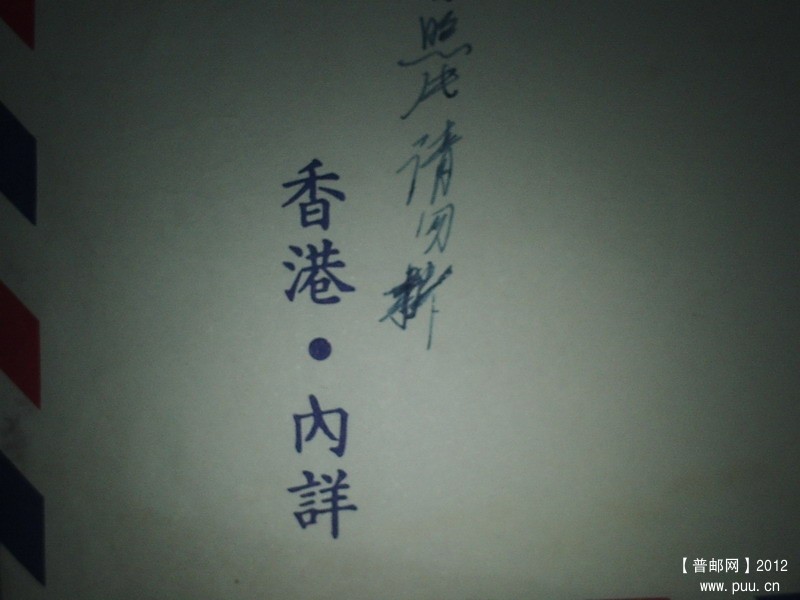 照片请勿折
香港·內詳
【普邮网】2012
www.puu.cn